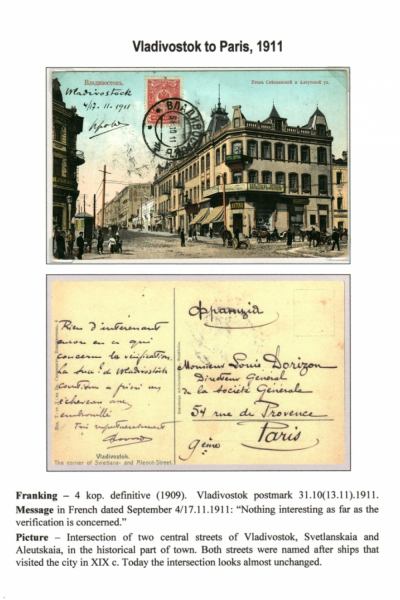 Vladivostok to Paris, 1911
Владивостокъ.
Уголъ Свѣтланской и Алеутской ул.
Vladivostock
4/17. 11. 1911
Франція
Rien d'intéressant
encore en ce qui
concerne la vérification.
La Suc. de Vladivostock
Monsieur Louis Dorizon
Directeur General
de la Société Générale
54 rue de Provence
Paris
9ème
Vladivostok.
The corner of Svietlana- and Aleout-Street.
Franking – 4 kop. definitive (1909). Vladivostok postmark 31.10(13.11).1911.
Message in French dated September 4/17.11.1911: “Nothing interesting as far as the
verification is concerned.”
Picture – Intersection of two central streets of Vladivostok, Svetlanskaia and
Aleutskaia, in the historical part of town. Both streets were named after ships that
visited the city in XIX c. Today the intersection looks almost unchanged.